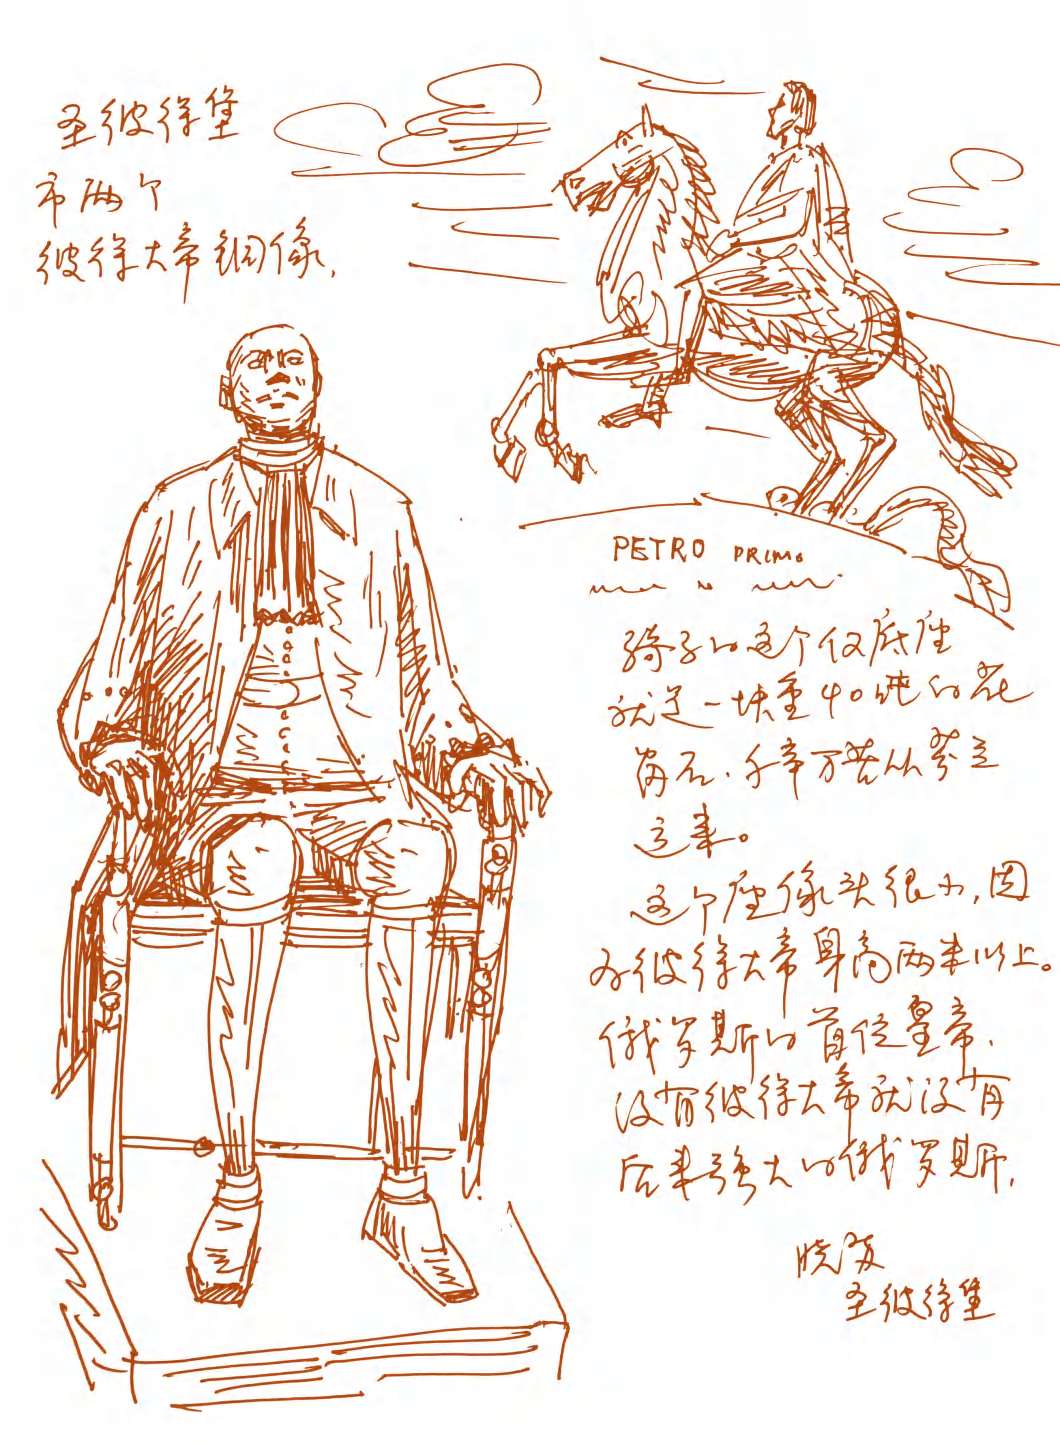 圣彼得堡
市两个
彼得大帝铜像.
PETRO PRIMO
骑马的这个仅底座
就是一块重40吨的花
岗石.千辛万苦从芬兰
运来。
这个座像头很小,因
为彼得大帝身高两米以上。
俄罗斯的首位皇帝.
没有彼得大帝就没有
后来强大的俄罗斯.
圣彼得堡